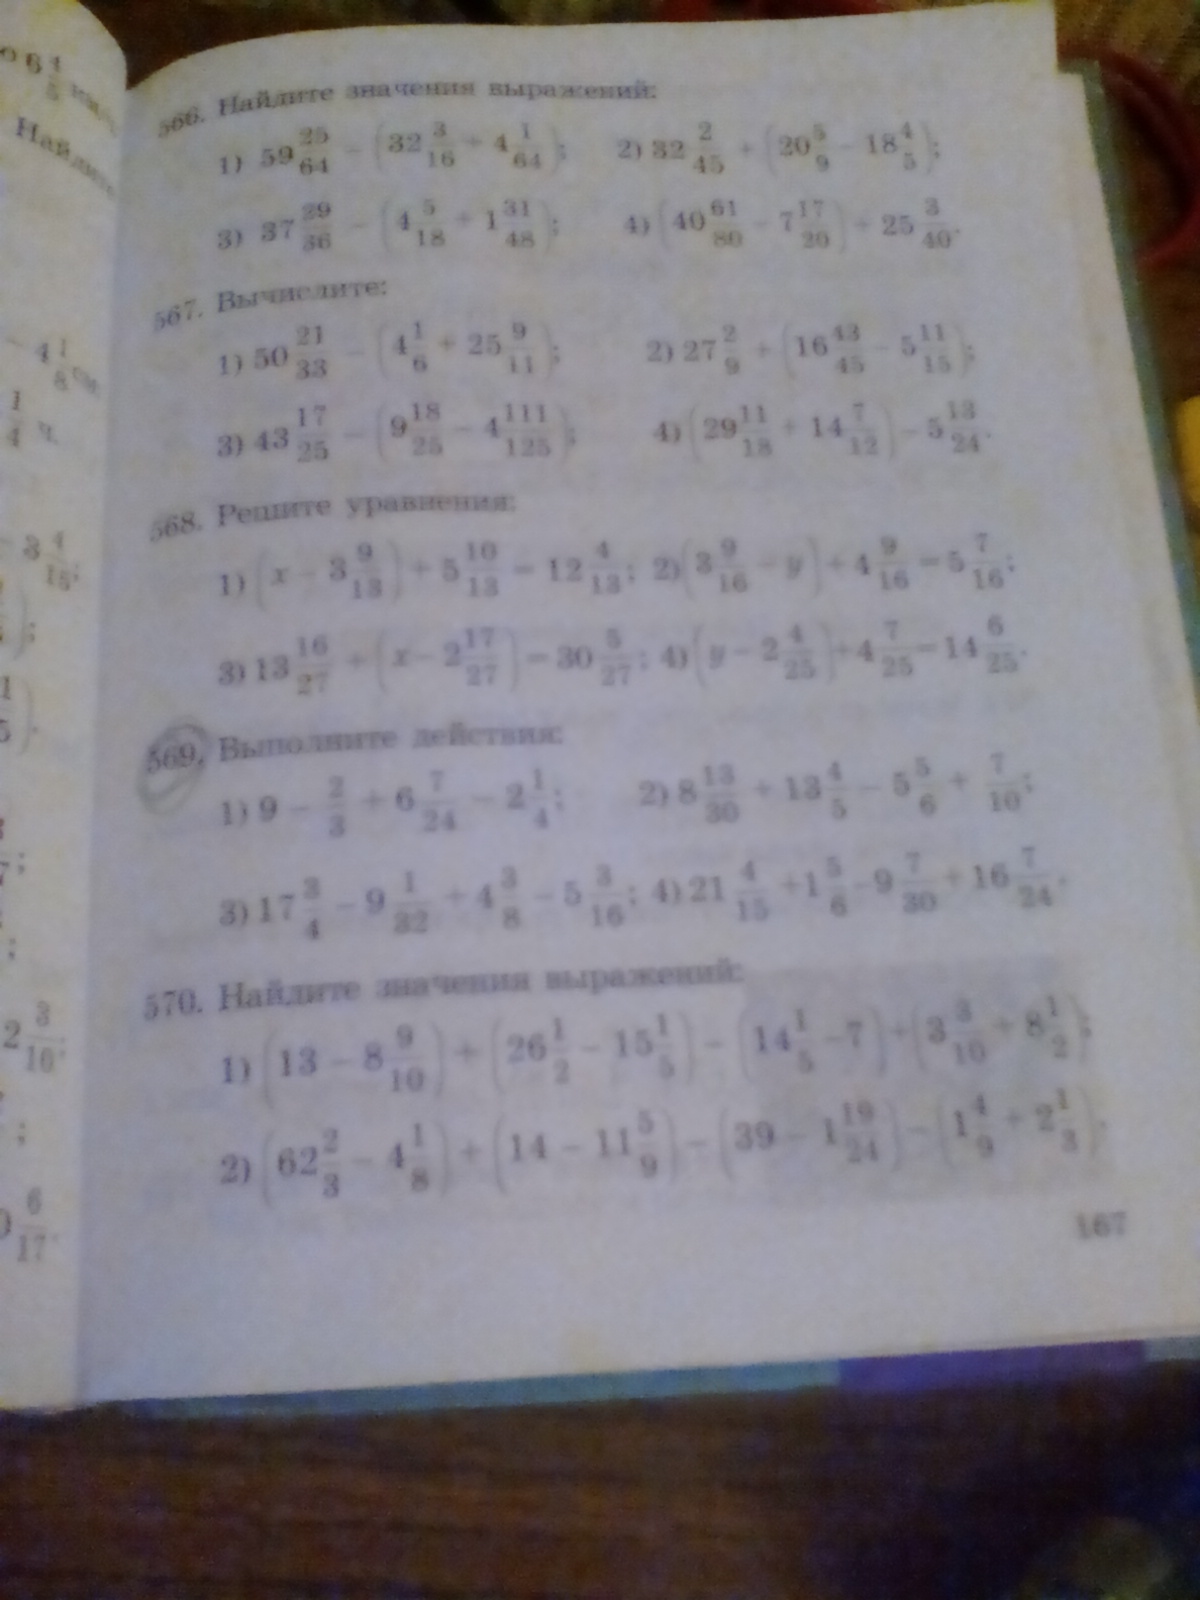 566. Найдите значения выражений:
1) 59 25/64 − (32 3/16 + 4 1/64); 2) 32 2/45 + (20 5/9 − 18 4/5);
3) 37 29/36 − (4 5/18 + 1 31/48); 4) (40 61/80 − 7 17/20) + 25 3/40.
567. Вычислите:
1) 50 21/33 − (4 1/6 + 25 9/11); 2) 27 2/9 + (16 43/45 − 5 11/15);
3) 43 17/25 − (9 18/25 − 4 111/125); 4) (29 11/18 + 14 7/12) − 5 13/24.
568. Решите уравнения:
1) (x − 3 9/13) + 5 10/13 = 12 4/13; 2) (3 9/16 − y) + 4 9/16 = 5 7/16;
3) 13 16/27 + (x − 2 17/27) = 30 5/27; 4) (y − 2 4/25) + 4 7/25 = 14 6/25.
569. Выполните действия:
1) 9 − 2/3 + 6 7/24 − 2 1/4; 2) 8 13/30 + 13 4/5 − 5 5/6 + 7/10;
3) 17 3/4 − 9 1/32 + 4 3/8 − 5 3/16; 4) 21 4/15 + 1 5/6 − 9 7/30 + 16 7/24.
570. Найдите значения выражений:
1) (13 − 8 9/10) + (26 1/2 − 15 1/5) − (14 1/5 − 7) + (3 3/10 + 8 1/2);
2) (62 2/3 − 4 1/8) + (14 − 11 5/9) − (39 − 1 19/24) − (1 4/9 + 2 1/3).
167